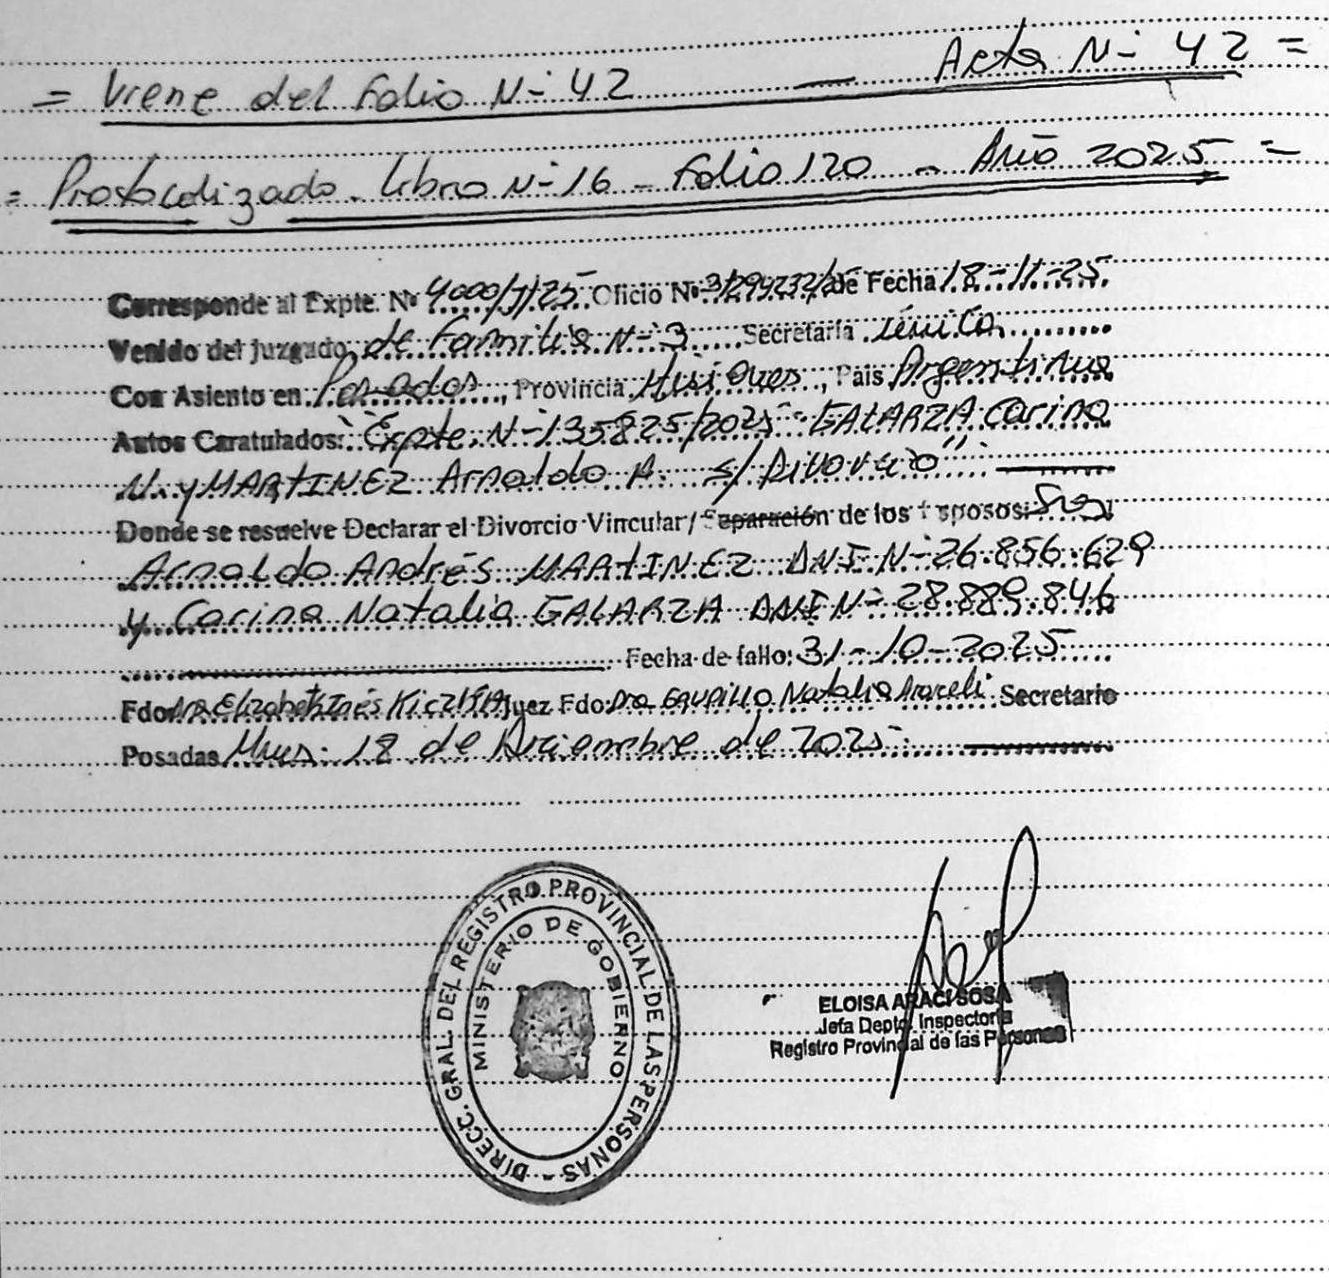 = Viene del Folio N- 42 — Acta N- 42 =
= Protocolizado. Libro N-16 - Folio 120 - Año 2025 =
Corresponde al Expte. Nº 4000/J/25 Oficio Nº 3/294232/25 de Fecha 18-11-25.
Venido del juzgado de Familia N-3 Secretaría única
Con Asiento en Posadas, Provincia Misiones, País Argentina
Autos Caratulados: "Expte. N-135825/2025 GALARZA Carina
N. y MARTINEZ Arnaldo A. s/ Divorcio"
Donde se resuelve Declarar el Divorcio Vincular/Separación de los Esposos: Sres
Arnaldo Andrés MARTINEZ DNI N-26.856.629
y Carina Natalia GALARZA DNI N- 28.889.846
Fecha de fallo: 31-10-2025
Fdo Dra Elizabeth Inés Juez Fdo: Dra Natalia Araceli Secretario
Posadas, Mnes. 18 de Diciembre de 2025
DIRECC. GRAL. DEL REGISTRO PROVINCIAL DE LAS PERSONAS -
MINISTERIO DE GOBIERNO
ELOISA ARACI SOSA
Jefa Depto. Inspectoría
Registro Provincial de las Personas